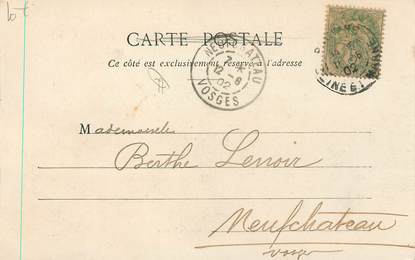 CARTE POSTALE
Ce côté est exclusivement réservé à l'adresse
NEUFCHATEAU
7 *
12 - 8
02
VOSGES
SEINE ET
Mademoiselle
Berthe Lenoir
Neufchateau
Vosges